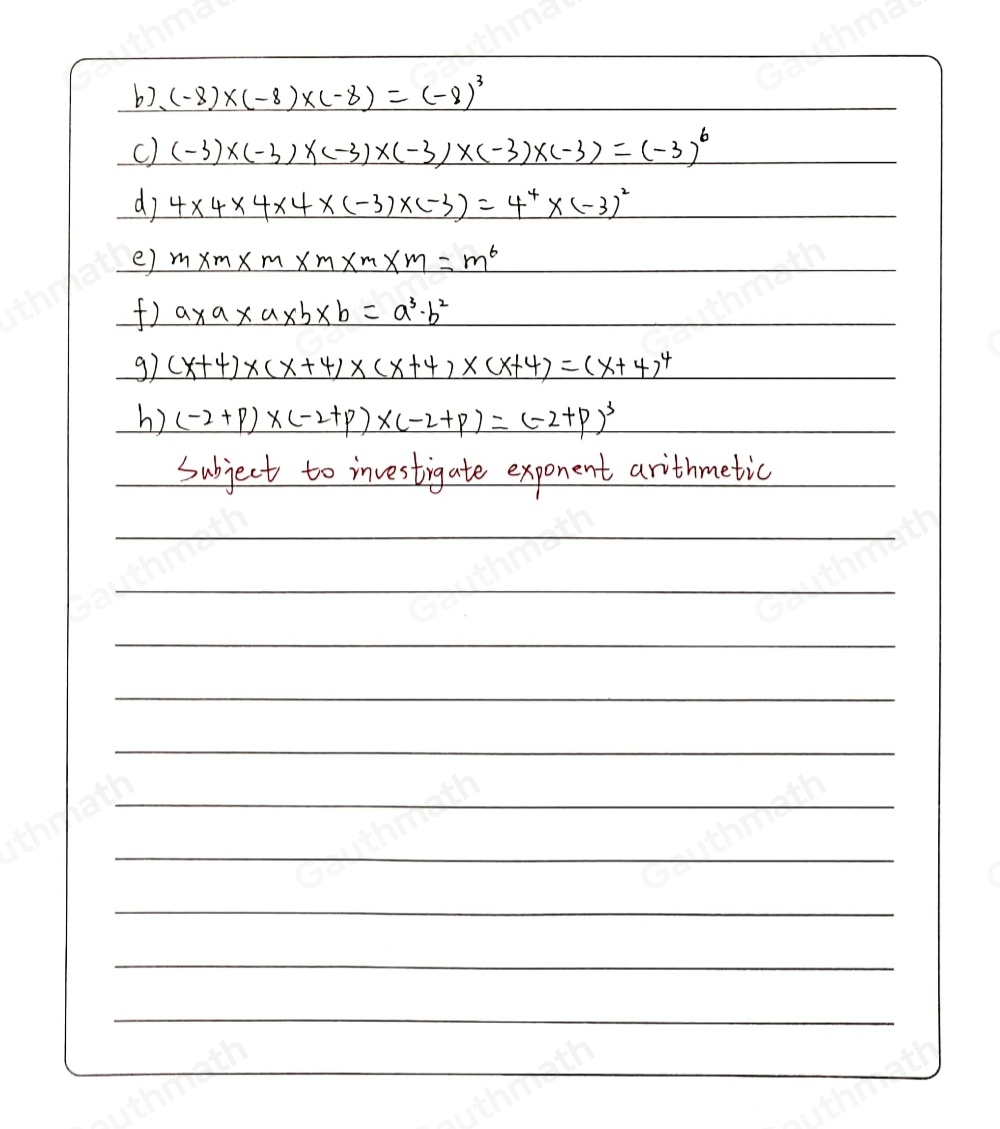 b)、(-8)×(-8)×(-8) = (-8)³
c) (-3)×(-3)×(-3)×(-3)×(-3)×(-3) = (-3)⁶
d) 4×4×4×4×(-3)×(-3) = 4⁴×(-3)²
e) m×m×m×m×m×m = m⁶
f) a×a×a×b×b = a³·b²
g) (x+4)×(x+4)×(x+4)×(x+4) = (x+4)⁴
h) (-2+p)×(-2+p)×(-2+p) = (-2+p)³
Subject to investigate exponent arithmetic
Gauthmath